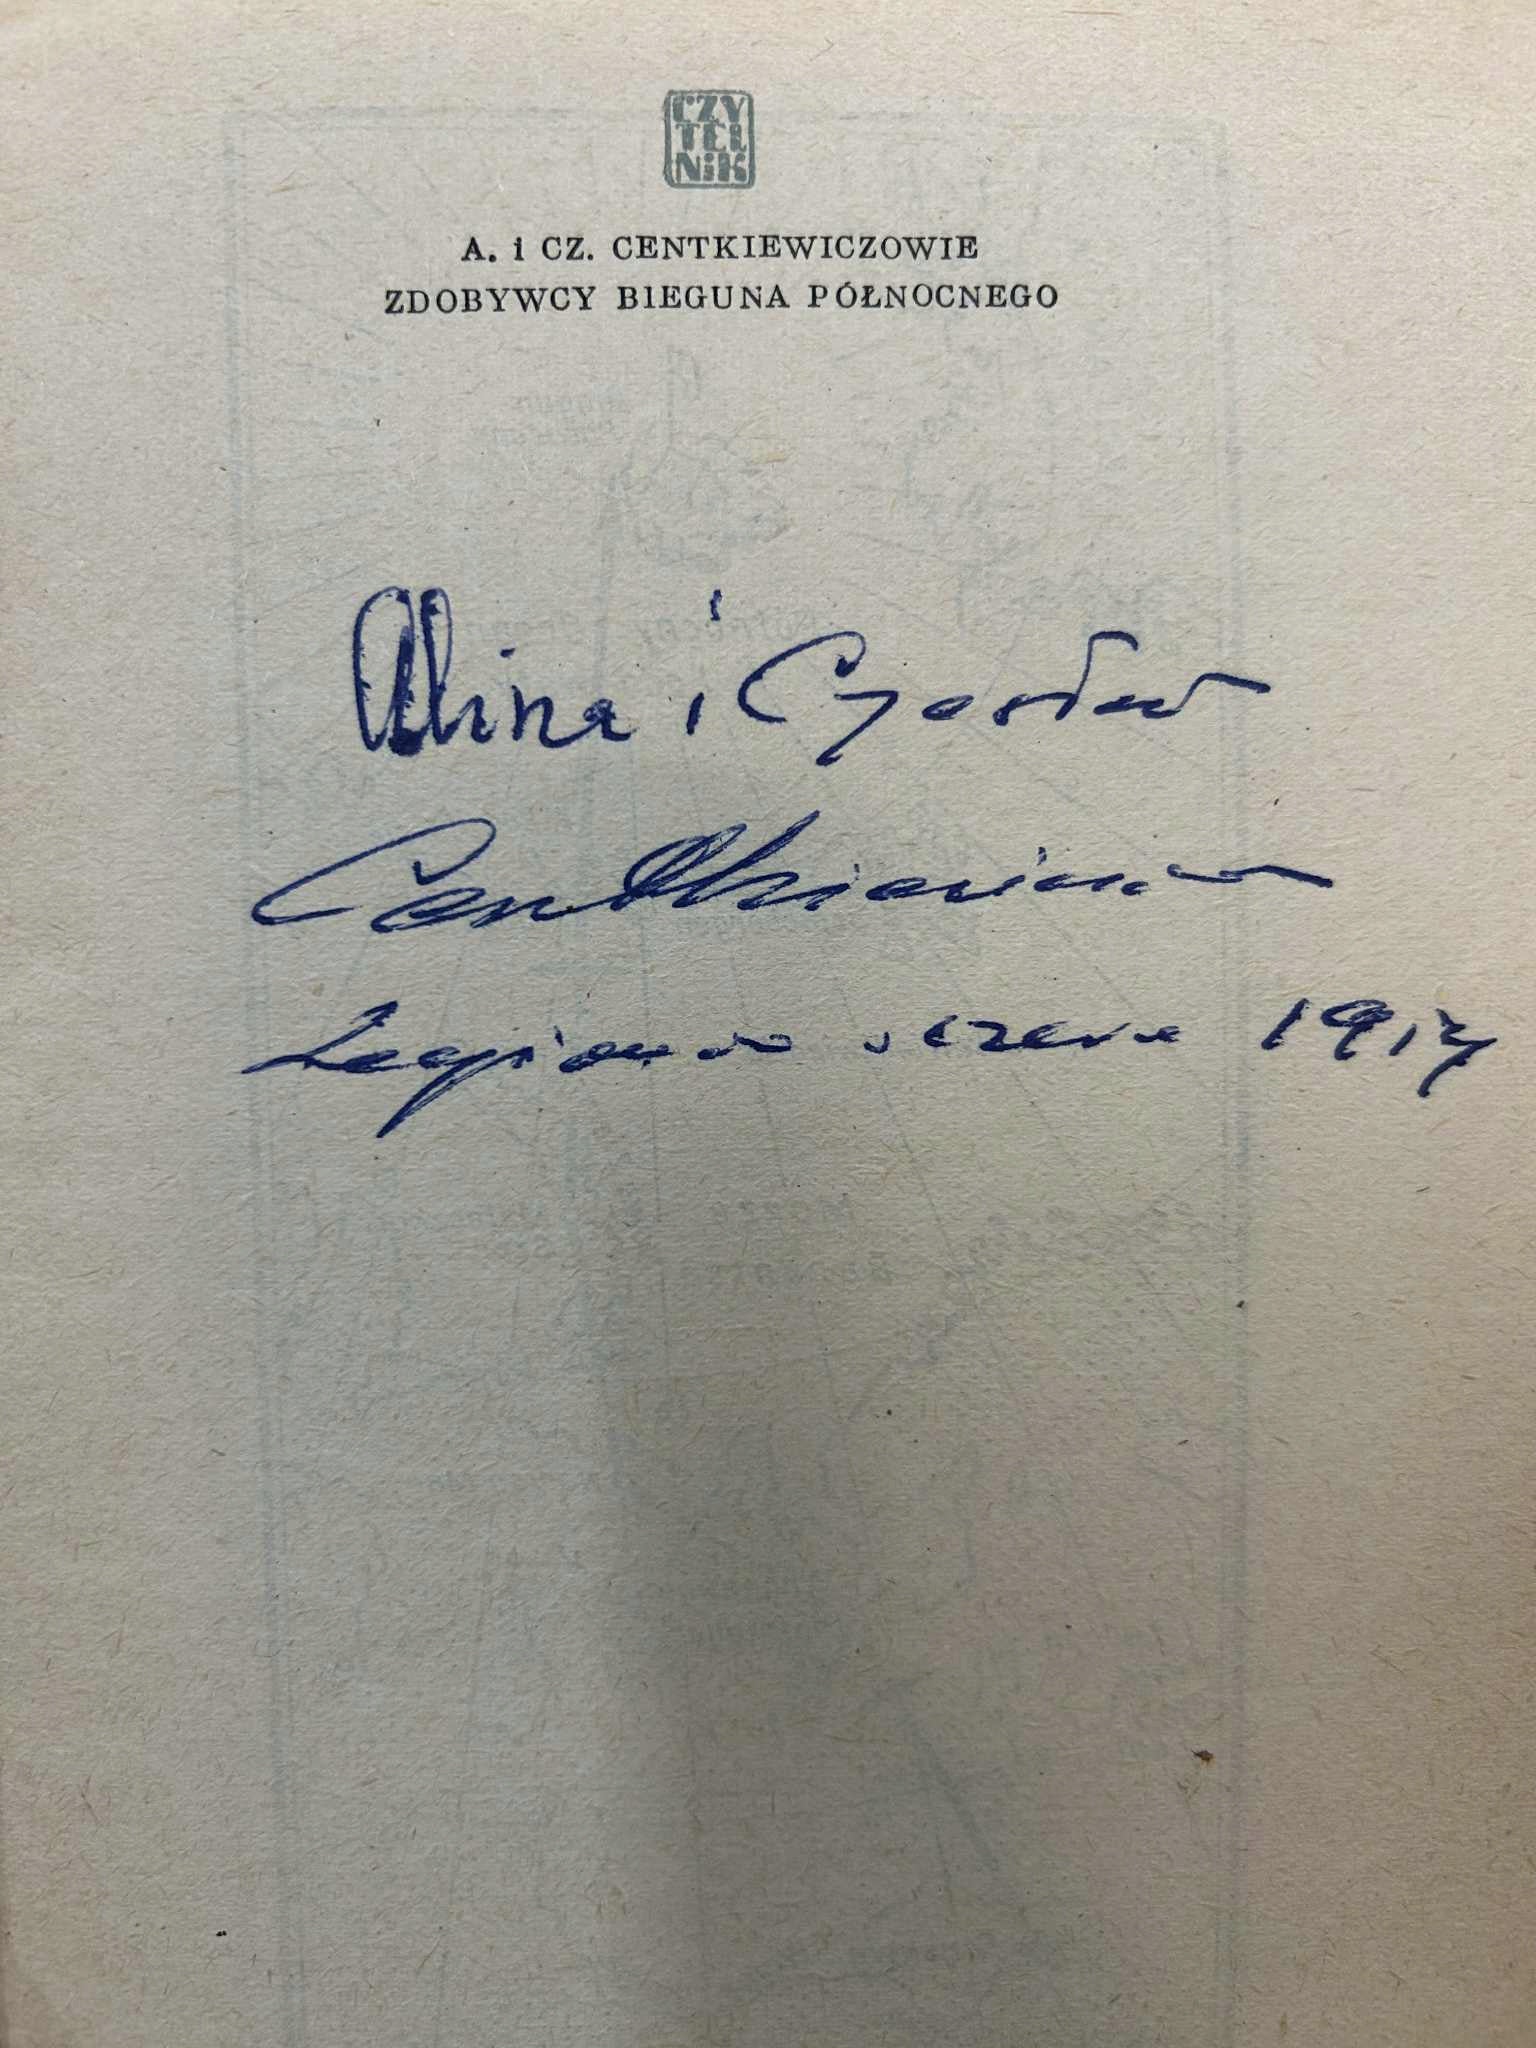 CZY
TEL
NiK
A. i CZ. CENTKIEWICZOWIE
ZDOBYWCY BIEGUNA PÓŁNOCNEGO
Alina i Czesław
Centkiewicz
Legionowo 1957